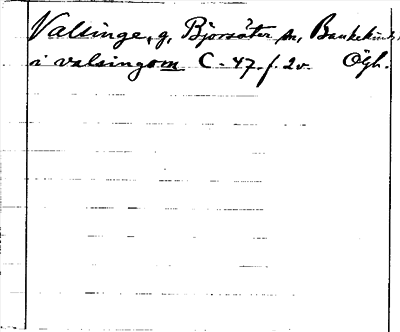 Valsinge, g, Björsäter sn, Bankekinds,
i valsingom C-47. f. 2v. Ögl.